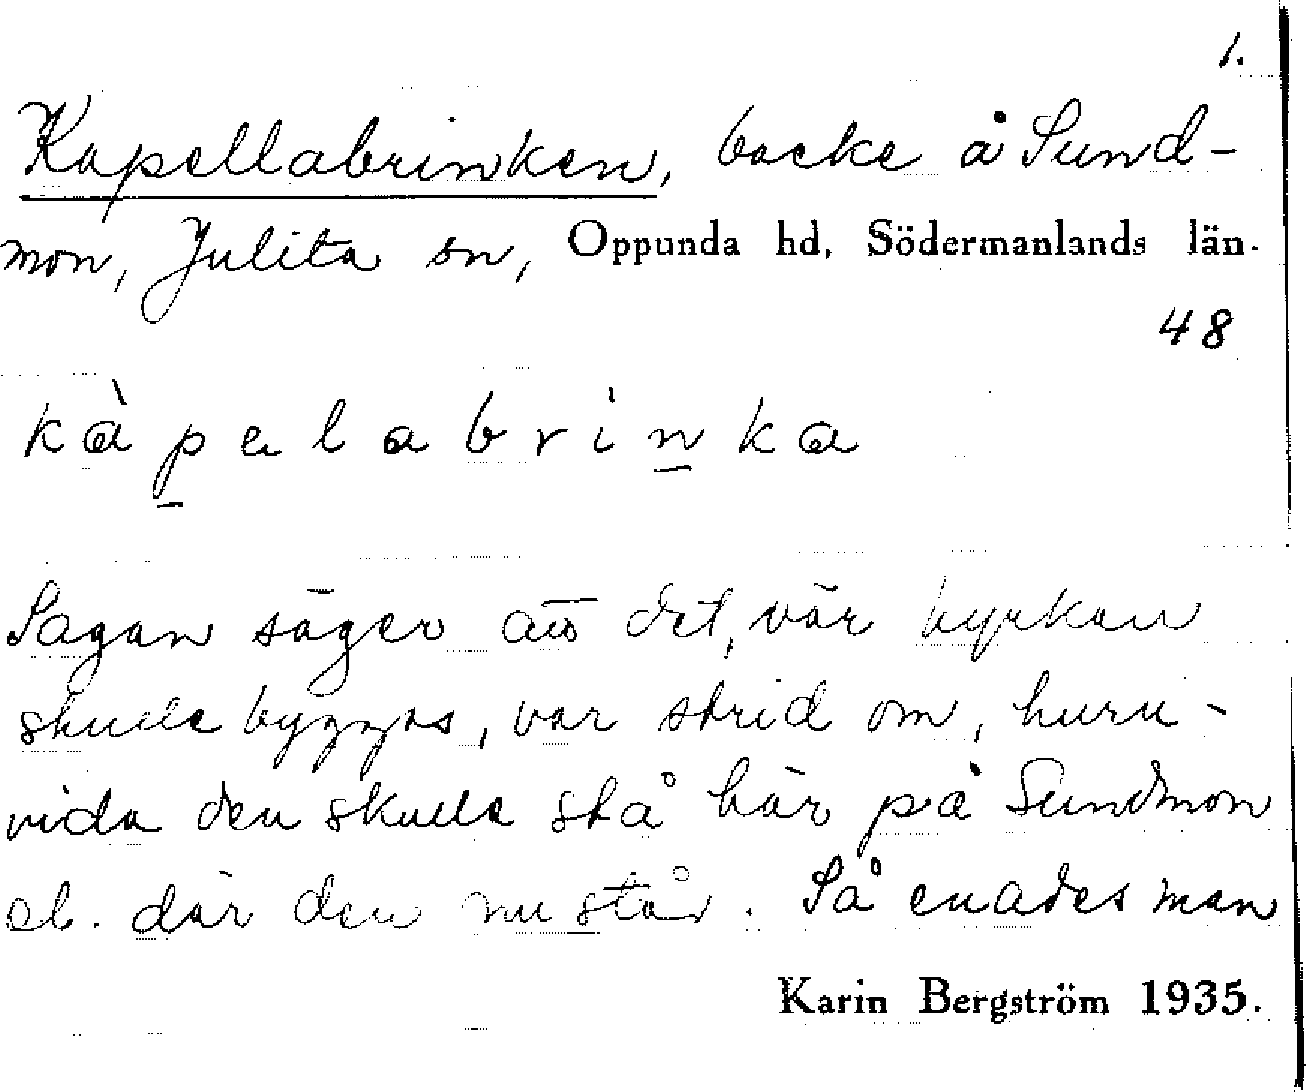 1.
Kapellabrinken, backe å Sund-
mon, Julita sn, Oppunda hd, Södermanlands län.
48
kàpelabrinka
Sagan säger att det, när kyrkan
skulle byggas, var strid om, huru-
vida den skulle stå här på Sundmon
el. där den nu står. Så enades man
Karin Bergström 1935.